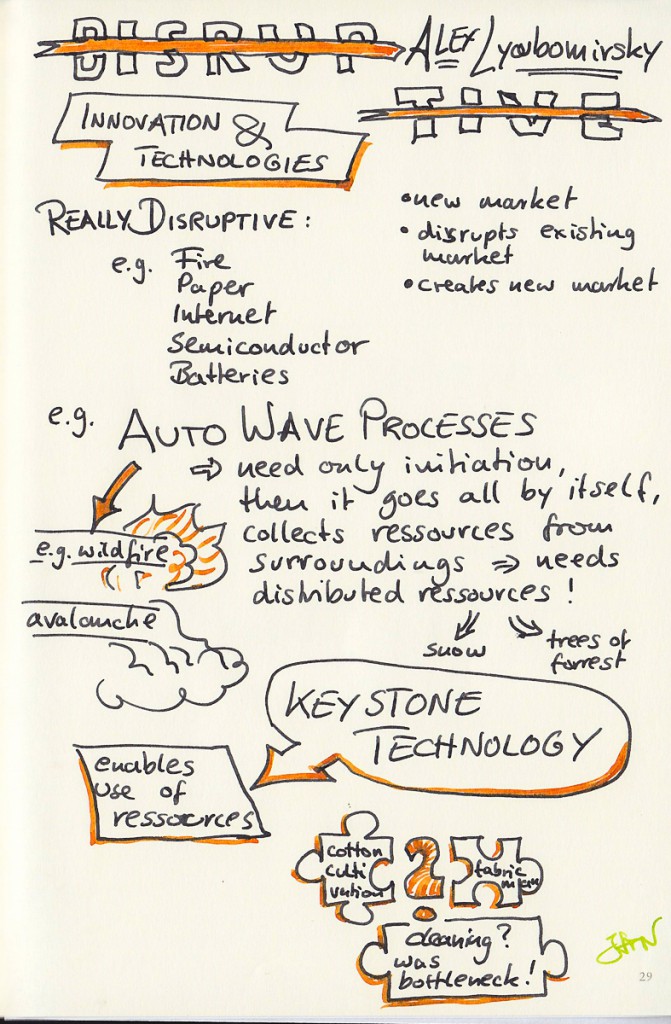 DISRUP
ALEX Lyoubomirsky
TIVE
INNOVATION &
TECHNOLOGIES
REALLY DISRUPTIVE:
e.g. Fire
Paper
Internet
Semiconductor
Batteries
• new market
• disrupts existing
market
• creates new market
e.g. AUTO WAVE PROCESSES
⇒ need only initiation,
then it goes all by itself,
collects ressources from
surroundings ⇒ needs
distributed ressources!
snow
trees of
forrest
e.g. wildfire
avalanche
KEYSTONE
TECHNOLOGY
enables
use of
ressources
cotton
culti
vation
?
fabric
cleaning?
was
bottleneck!
29